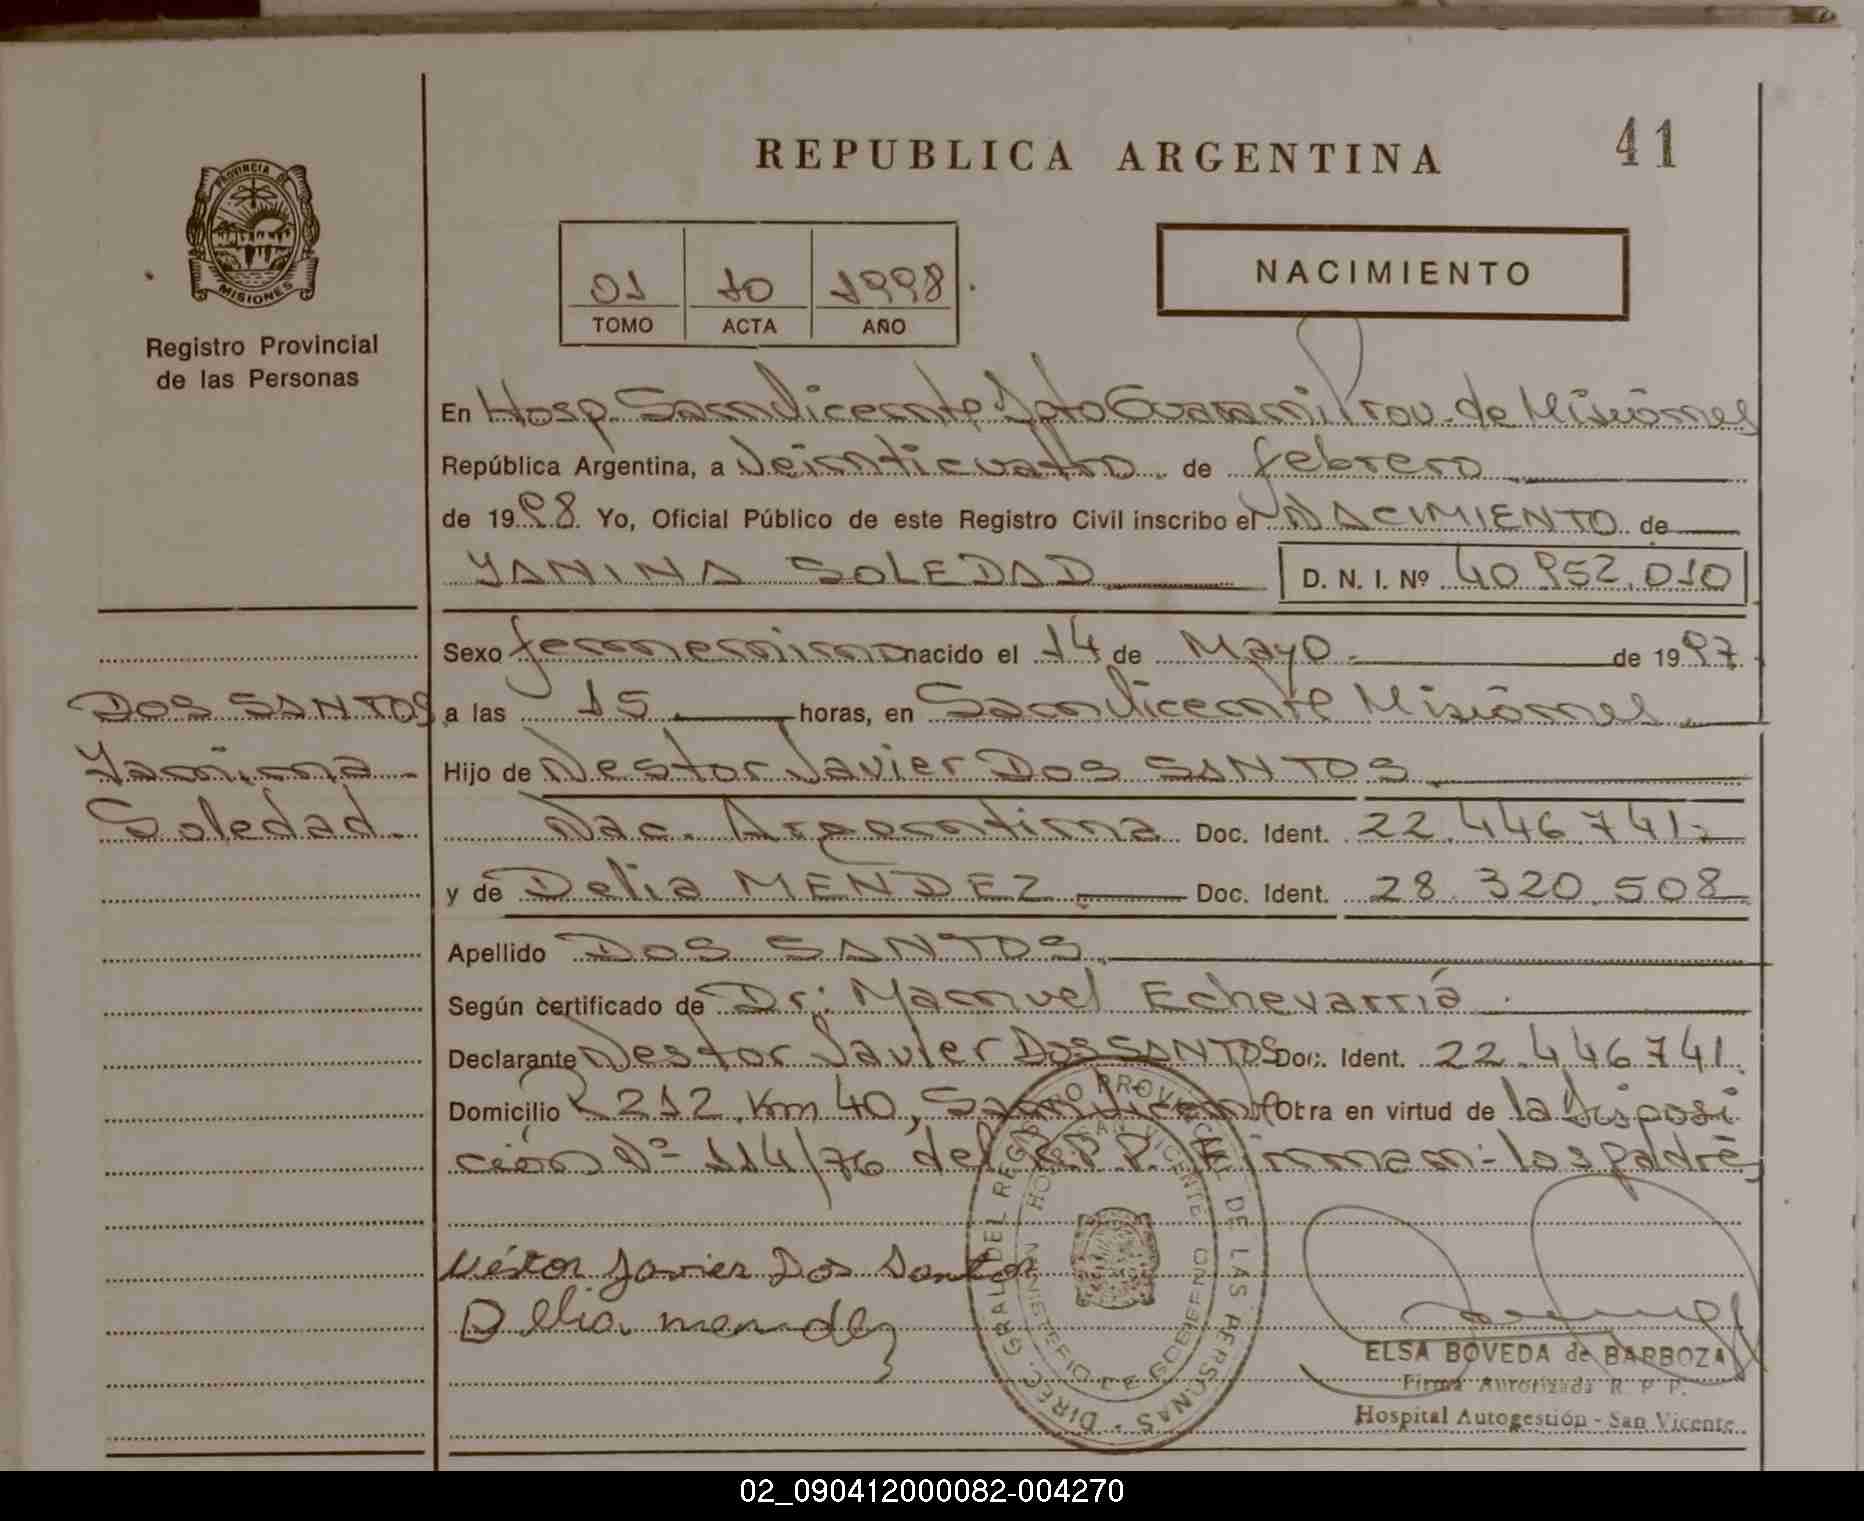 REPUBLICA ARGENTINA
41
PROVINCIA DE
MISIONES
Registro Provincial
de las Personas
01 10 1998
TOMO ACTA AÑO
NACIMIENTO
En Hosp. San Vicente Dpto Guarani Prov. de Misiones
República Argentina, a Veinticuatro de febrero
de 1998. Yo, Oficial Público de este Registro Civil inscribo el NACIMIENTO de
YANINA SOLEDAD D. N. I. Nº 40 952.010
Sexo femenino nacido el 14 de Mayo de 1997
DOS SANTOS
Yanina
Soledad
a las 15 horas, en San Vicente Misiones
Hijo de Nestor Javier DOS SANTOS
Nac. Argentina Doc. Ident. 22.446.741
y de Delia MENDEZ Doc. Ident. 28.320.508
Apellido DOS SANTOS
Según certificado de Dr: Manuel Echevarría
Declarante Nestor Javier DOS SANTOS Doc. Ident. 22.446.741
Domicilio R 212, Km 40, San Vicente Obra en virtud de la Disposi
ción Nº 114/76 del R.P.P. Firman: los padres
Néstor Javier Dos Santos
Delia mendez
DIREC. GRAL. DEL REGISTRO PROVINCIAL DE LAS PERSONAS
SAN VICENTE
MINISTERIO DE GOBIERNO
ELSA BOVEDA de BARBOZA
Firma Autorizada R. P. P.
Hospital Autogestión - San Vicente
02_090412000082-004270